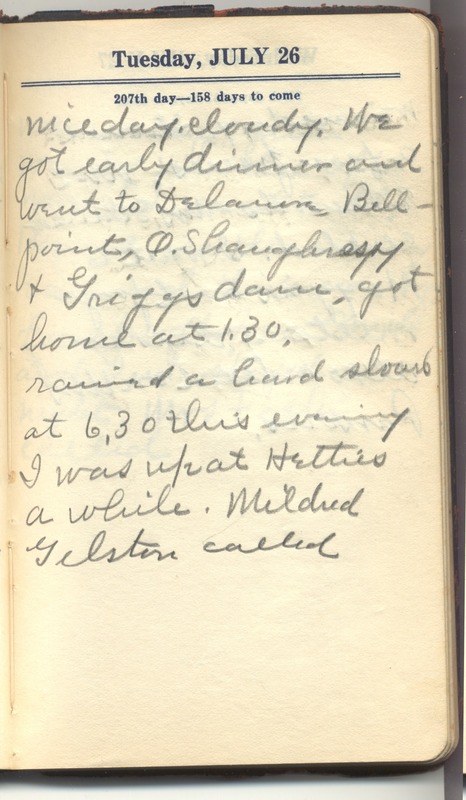 Tuesday, JULY 26
207th day—158 days to come
nice day. cloudy. We
got early dinner and
went to Delaware, Bell-
point, O.Shaughnessy
& Griggs dam, got
home at 1.30.
rained a hard
at 6,30 this evening
I was up at Hetties
a while. Mildred
Gelston called